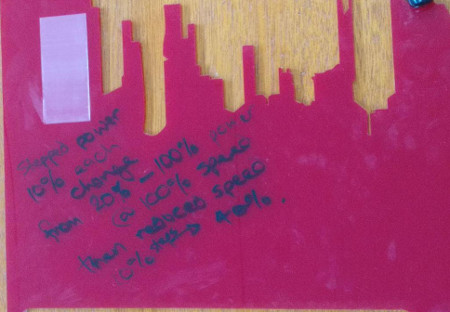 Stepped power
10% each
change
from 20% - 100% power
@ 100% speed
then reduced speed
0% 40%.